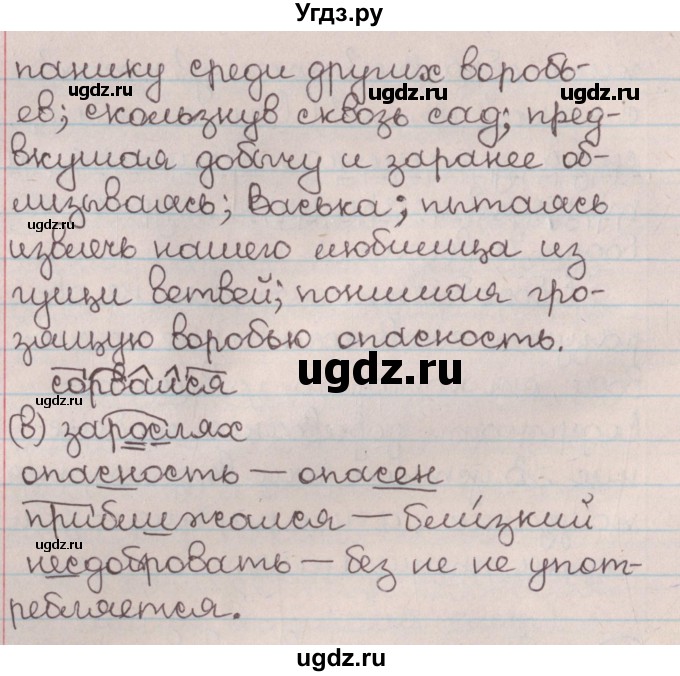 Угдз.ру
панику среди других воробь-
ев; скользнув сквозь сад; пред-
вкушая добычу и заранее об-
лизываясь; Васька; пытаясь
извлечь нашего любимца из
гущи ветвей; понимая гро-
зящую воробью опасность.
сорвался
(в) зарослях
опасность — опасен
приближался — бли́зкий
несдобровать — без не не упот-
ребляется.
ugdz.ru
ugdz.ru
ugdz.ru
ugdz.ru
ugdz.ru
ugdz.ru
ugdz.ru
ugdz.ru
ugdz.ru
ugdz.ru
ugdz.ru